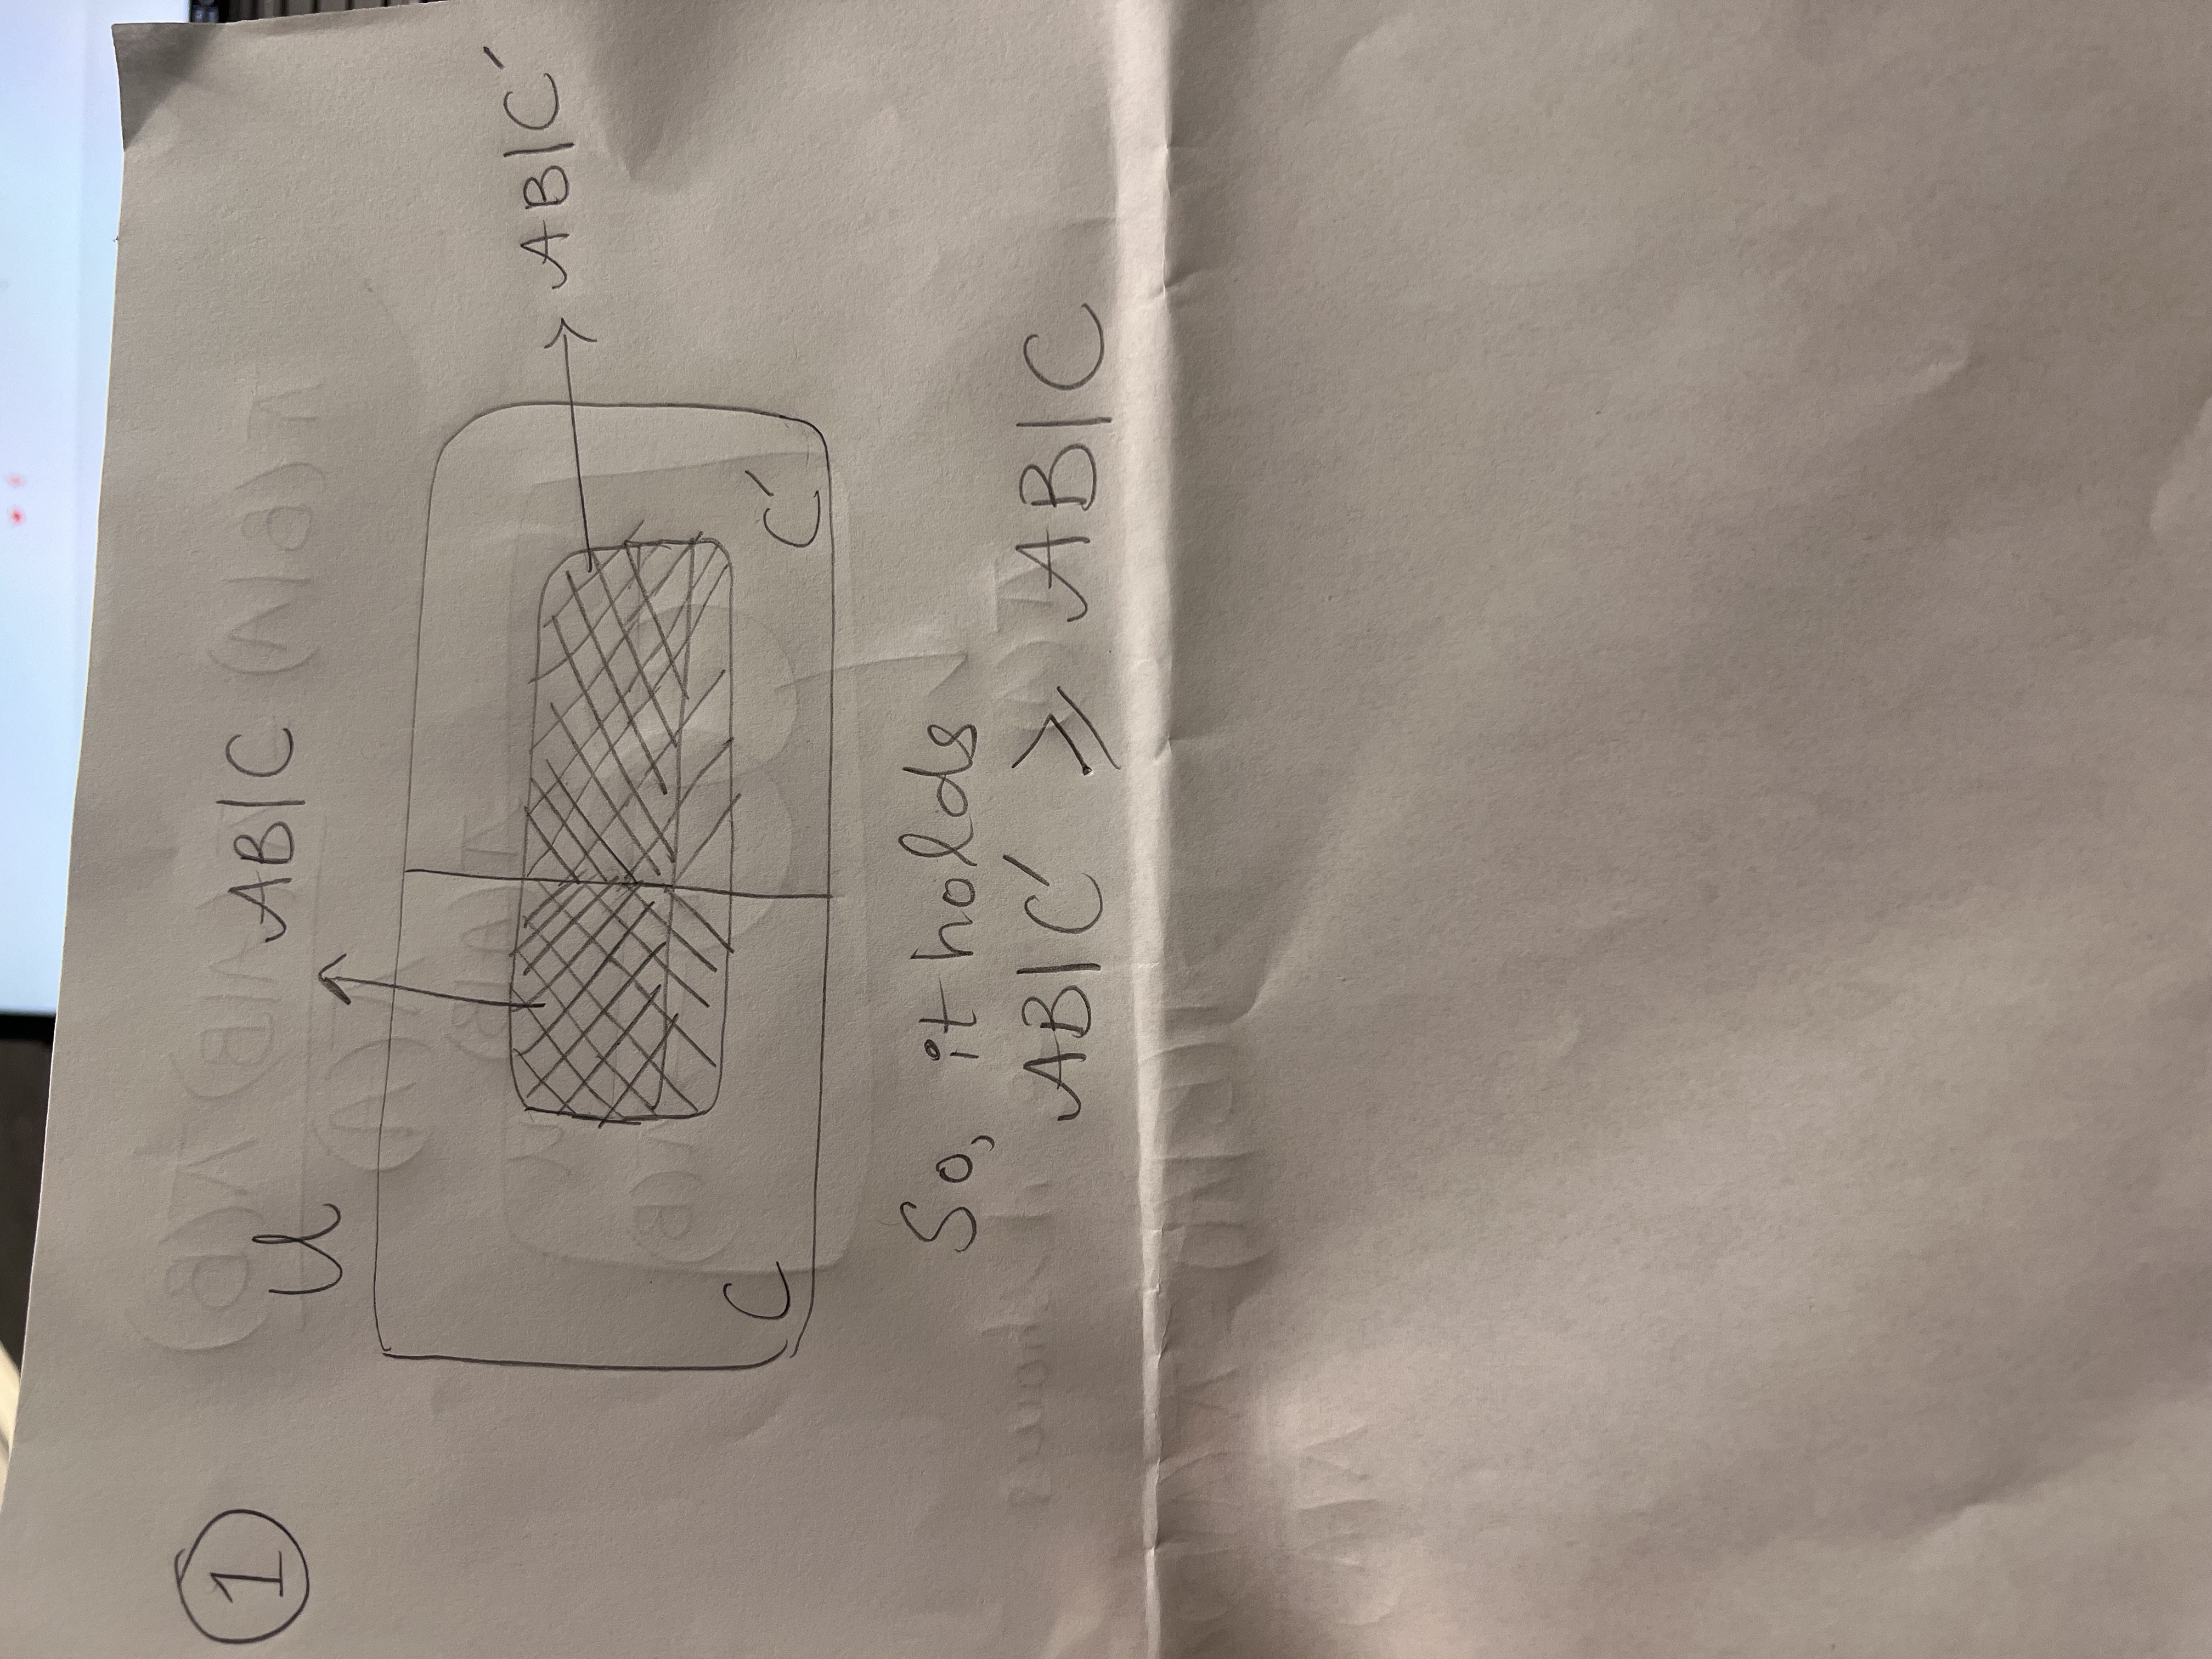 1
U AB|C
AB|C′
C C′
So, it holds
AB|C′ ≥ AB|C